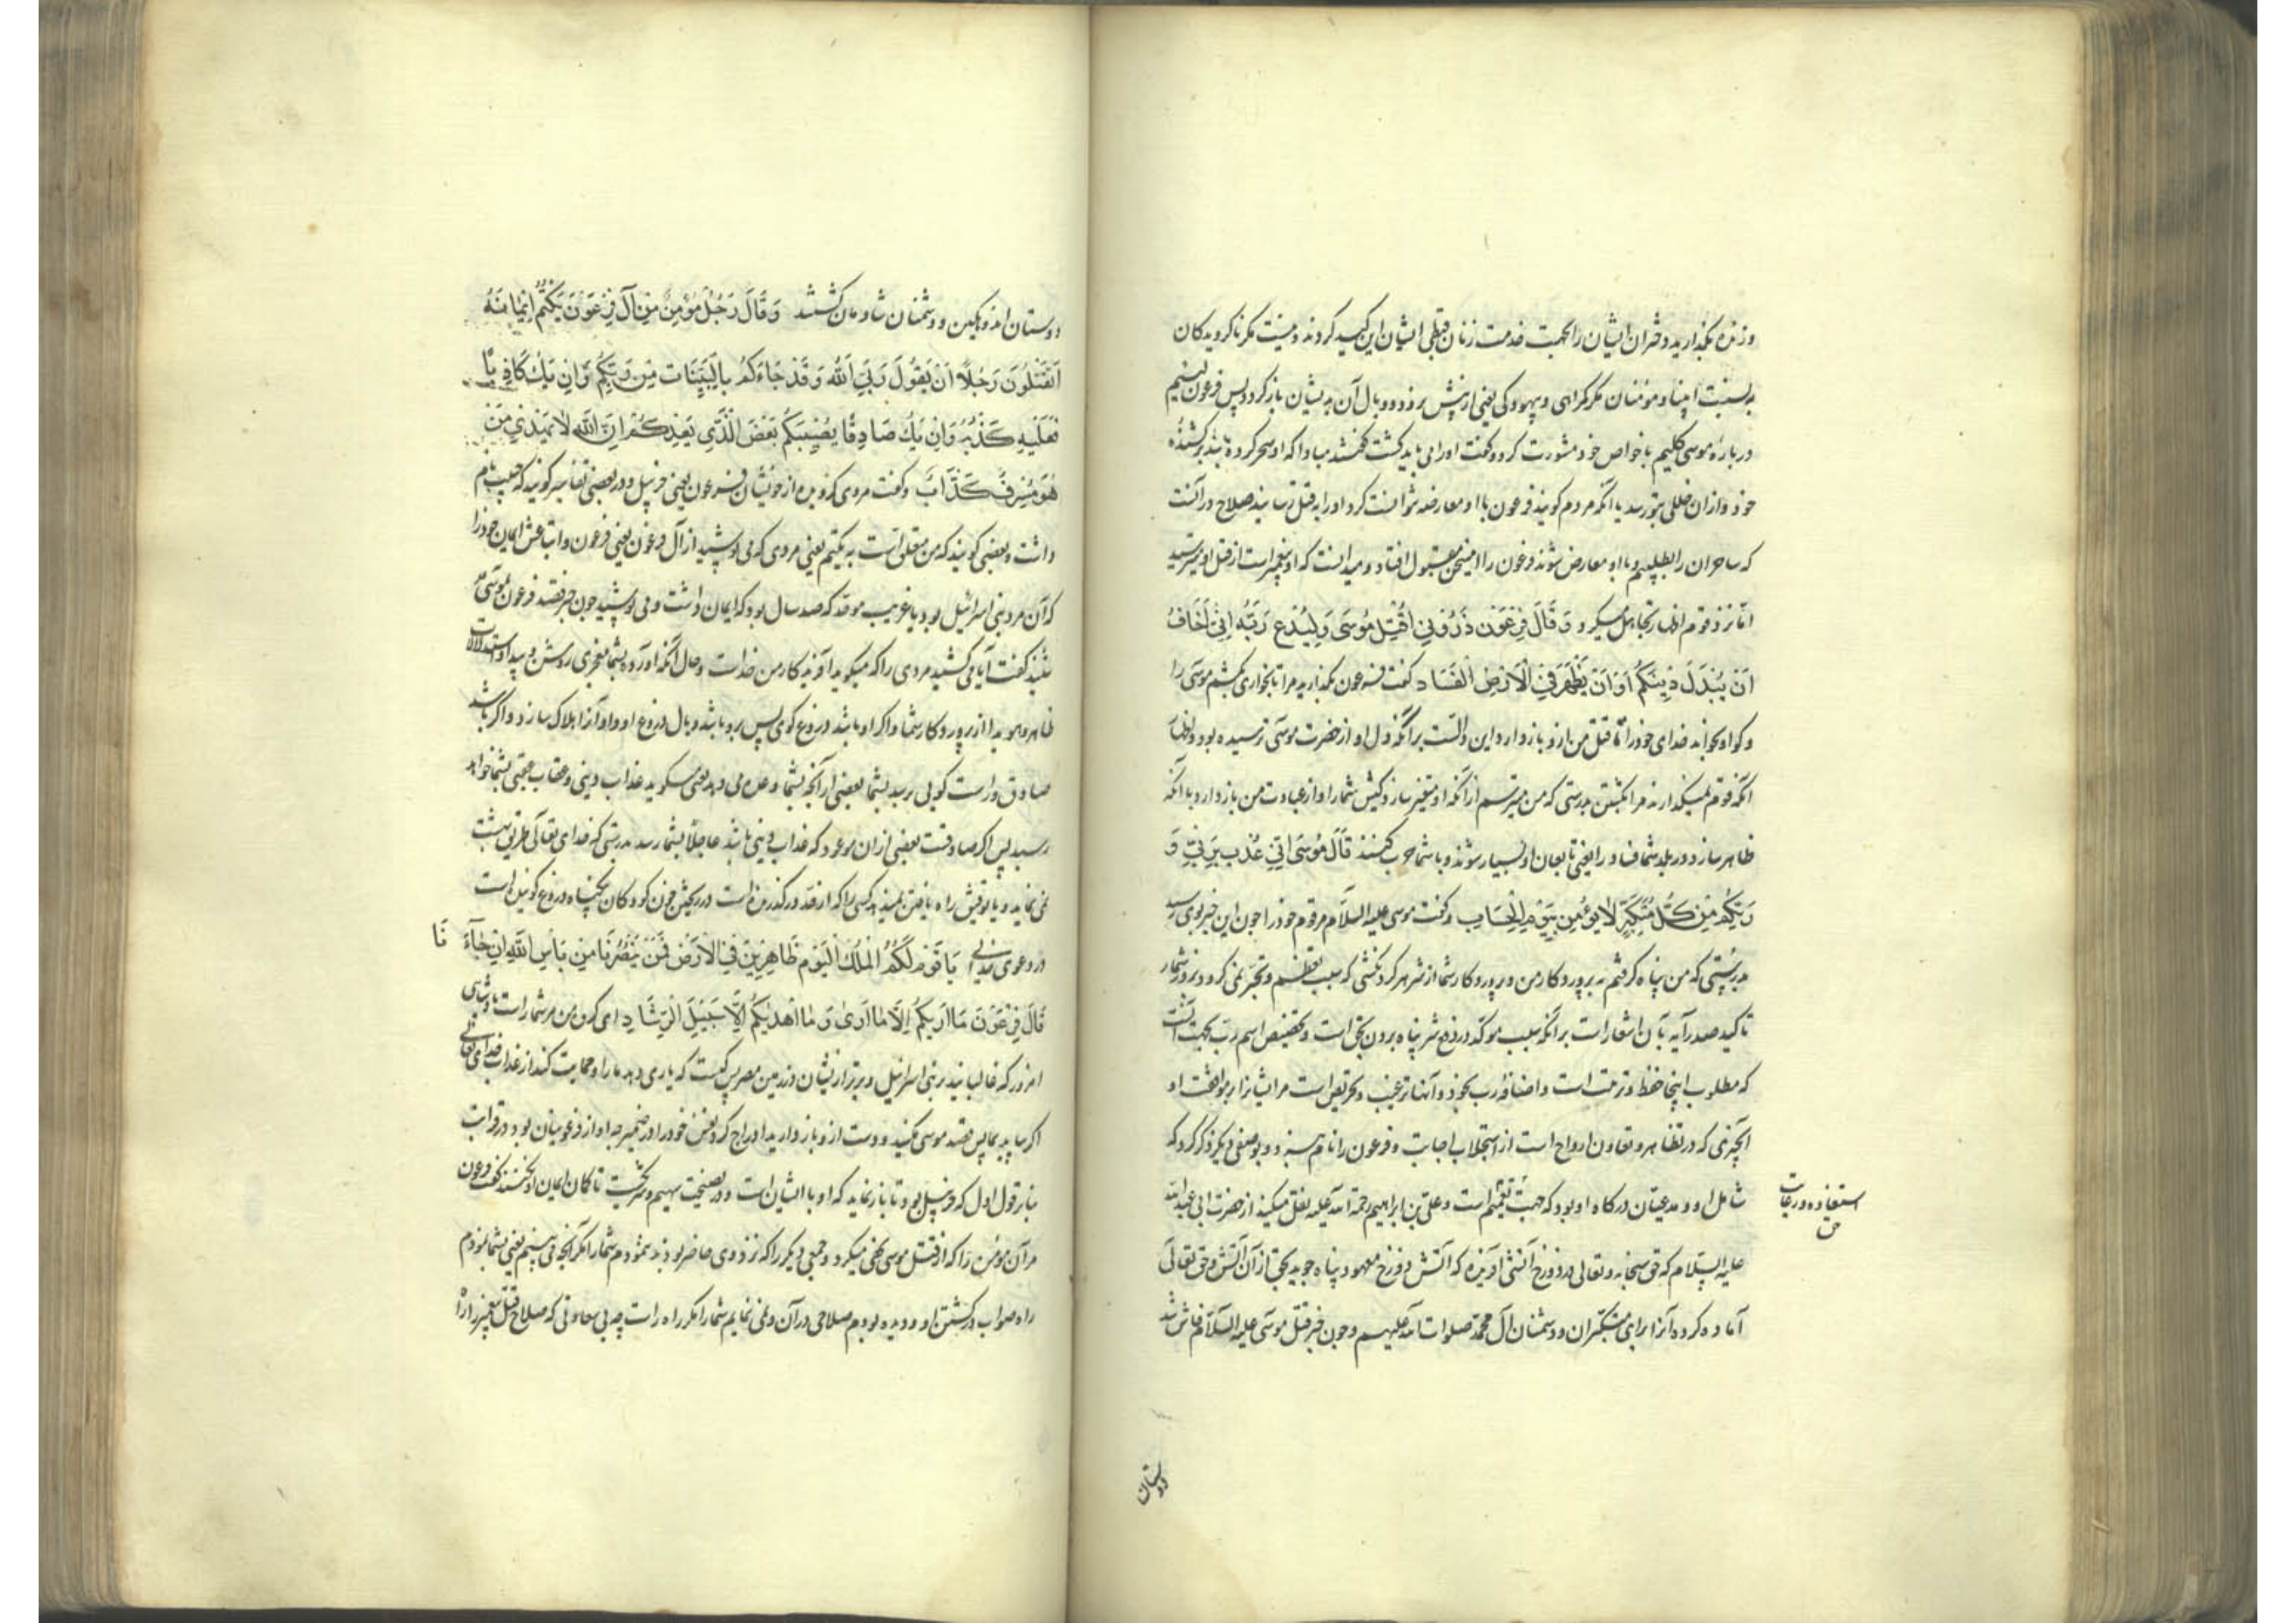 و زنده بگذارید دختران ایشان را بجهت خدمت زنان قبطی ایشان این کید کردند و نیست مکر ناکرویدکان
به نسبت انبیا و مؤمنان مکر کمراهی و بیهودکی یعنی از پیش نرفت و وبال آن بدیشان بازکردد پس فرعون لئیم
درباره موسی کلیم با خواص خود مشورت کرد و گفت او را می باید کشت گفتند مبادا که او سحر کرده باشد بر کشنده
خود و از ان خللی بتو رسد یا آنکه مردم کویند فرعون با او معارضه نتوانست کرد او را به قتل رسانید صلاح در آنست
که ساحران را بطلبیم و با او معارض شوند فرعون را این سخن مقبول افتاد و میدانست که او پیغمبر است از قتل او میترسید
اما نزد قوم اظهار تجاهل میکرد وَقَالَ فِرْعَوْن ذَرُونِي أَقْتُلْ مُوسَى وَلْيَدْعُ رَبَّهُ اِنِّي أَخَافُ
اَنْ يُبَدِّلَ دِينَكُمْ اَوْ اَنْ يُظْهِرَ فِي الْاَرْضِ الْفَسَاد گفت فرعون بگذارید مرا تا بخواری بکشم موسی را
و کو او بخواند خدای خود را تا قتل من ازو بازدارد این دالست بر آنکه دل او از حضرت موسی ترسیده بود و اظهار
آنکه قوم نمیگذارند مرا بکشتن بدرستی که من میترسم از آنکه او متغیر سازد کیش شما را و از عبادت من بازدارد یا آنکه
ظاهر سازد در بلد شما فساد را یعنی تابعان او بسیار شوند و با شما حرب کنند قَالَ مُوسَى اِنِّي عُذْتُ بِرَبِّي وَ
رَبِّكُمْ مِنْ كُلِّ مُتَكَبِّرٍ لَا يُؤْمِنُ بِيَوْمِ الْحِسَابِ و گفت موسی علیه السلام مر قوم خود را چون این خبر بوی رسید
بدرستی که من پناه کرفتم به پروردکار من و پروردکار شما از شر هر کردنکشی که بسبب تعظم و تجبر نمی کرود بروز شمار
تاکید صدر آیه بأن اشعار است بر آنکه سبب موکد در دفع شر پناه بردن بحق است و تخصیص اسم رب بجهت آنست
که مطلوب اینجا حفظ و تربیت است و اضافه رب بخود و آنها ترغیب و تحریص است مر ایشان را بر موافقت او
آنچیزی که در تظاهر و تعاون ارواح است از استجلاب اجابت و فرعون را نام نبرد و بوصفی دیکر ذکر کرد که
شامل او و مدعیان درکاه او بود که جهت تعمیم است و علی بن ابراهیم رحمة الله علیه نقل میکند از حضرت ابی عبدالله
استعاذه و رعایت
حق
علیه السلام که حق سبحانه و تعالی در دوزخ آتشی آفریده که آتش دوزخ معهود پناه جوید بحق از آن آتش و حق تعالی
آماده کرده آنرا برای متکبران و دشمنان آل محمد صلوات الله علیهم و چون خبر قتل موسی علیه السلام فاش شد
دوستان
دوستان اندوهکین و دشمنان شادمان کشتند وَقَالَ رَجُلٌ مُؤْمِنٌ مِنْ آلِ فِرْعَوْنَ يَكْتُمُ اِيمَانَهُ
اَتَقْتُلُونَ رَجُلًا اَنْ يَقُولَ رَبِّيَ اللّٰهُ وَقَدْ جَاءَكُمْ بِالْبَيِّنَات مِنْ رَبِّكُمْ وَاِنْ يَكُ كَاذِبًا
فَعَلَيْهِ كَذِبُهُ وَاِنْ يَكُ صَادِقًا يُصِبْكُمْ بَعْضُ الَّذِي يَعِدُكُمْ اِنَّ اللّٰه لَا يَهْدِي مَنْ
هُوَ مُسْرِفٌ كَذَّابٌ و گفت مردی کرویده از خویشان فرعون یعنی خربیل و در بعضی تفاسیر کویند که حبیب نام
داشت و بعضی کویند که من متعلق است به یکتم یعنی مردی که می پوشید از آل فرعون یعنی فرعون و اتباعش ایمان خود را
که آن مرد بنی اسرائیل بود یا غریب موحد که صد سال بود که ایمان داشت و می پوشید چون خبر قصد فرعون بموسی
شنید گفت آیا می کشید مردی را که میکوید آفریدکار من خداست و حال آنکه آورده بشما معجزهای روشن و پیدا و استدلالات
ظاهر و هویدا از پروردکار شما و اکر او باشد دروغ کوی پس برو باشد وبال دروغ او و او آنرا هلاک سازد و اکر باشد
صادق و راست کوی برسد بشما بعضی از آنچه بشما وعده می دهد یعنی میکوید عذاب دنیی و عقاب عقبی بشما خواهد
رسید پس اکر صادقست بعضی از ان موعود که عذاب دنیی باشد عاجلاً بشما رسد بدرستی که خدای تعالی طریق بهشت
نمی نماید و یا توفیق راه یافتن نمیدهد کسی را که از حد درکذرنده است در ریختن خون کودکان بیکناه دروغ کوینده است
در دعوی خدایی يَا قَوْمِ لَكُمُ الْمُلْكُ الْيَوْمَ ظَاهِرِينَ فِي الْاَرْضِ فَمَنْ يَنْصُرُنَا مِنْ بَأْسِ اللّٰهِ اِنْ جَاءَنَا
قَالَ فِرْعَوْنَ مَا اُرِيكُمْ اِلَّا مَا اَرَى وَمَا اَهْدِيكُمْ اِلَّا سَبِيلَ الرَّشَادِ ای کروه من مر شما راست پادشاهی
امروز که غالبانید بر بنی اسرائیل و برتر از ایشان در زمین مصر پس کیست که یاری دهد ما را و حمایت کند از عذاب خدای تعالی
اکر بیاید بما پس قصد موسی مکنید و دست ازو بازدارید ادراج کرد نفس خود را در ضمیر چه او از فرعونیان بود در قرابت
بنابر قول اول که خربیل بود تا بازنماید که او با ایشان است و در نصیحت سهیم و شریکست تا کمان ایمان او نکنند گفت فرعون
مر آن مؤمن را که از قتل موسی نهی میکرد و جمعی دیکر را که نزد وی حاضر بودند ننمودم شما را مکر آنچه می بینم یعنی بشما نمودم
راه صواب در کشتن او و دیده بودم صلاحی در آن و نمی نمایم شما را مکر راه راست چه بی سعادتی که صلاح قتل پیغمبر را از